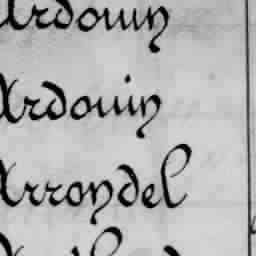 Ardouin
Ardouin
Arrondel